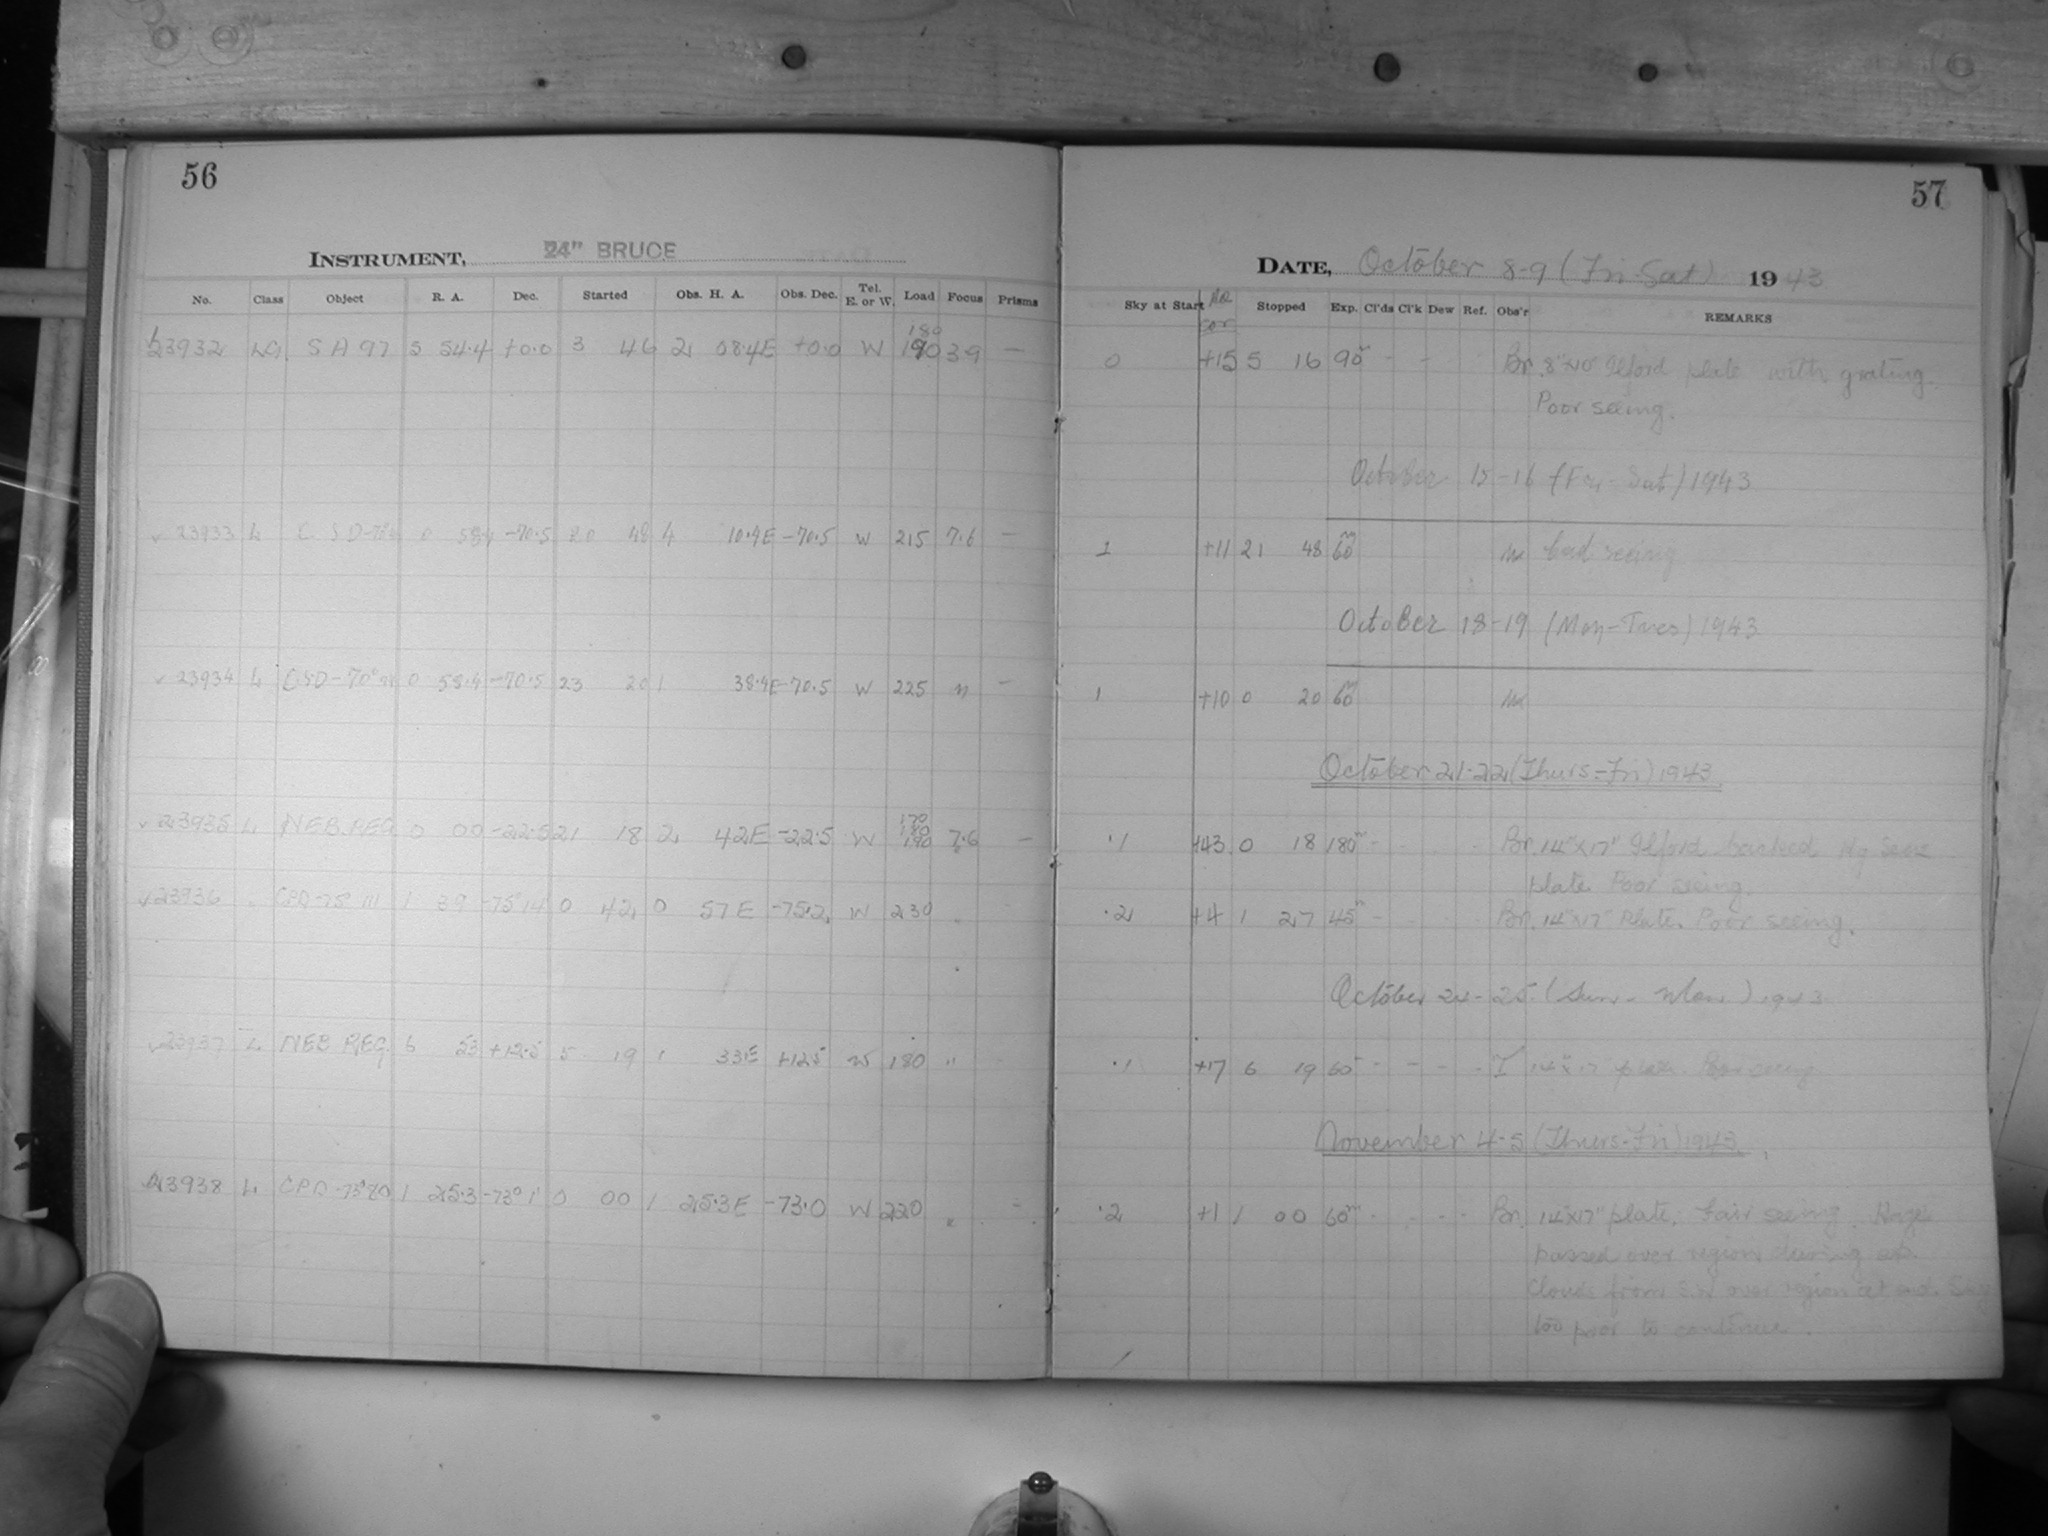 56
INSTRUMENT, 24" BRUCE
No. Class Object R. A. Dec. Started Obs. H. A. Obs. Dec. Tel. E. or W. Load Focus Prisms
180
23932 LG SA 97 5 54.4 +0.0 3 46 2 08.4E +0.0 W 190 3.9 —
23933 L 0 58.4 -70.5 20 48 4 10.4E -70.5 W 215 7.6 —
23934 L 0 58.4 -70.5 23 20 1 38.4E -70.5 W 225 " —
170
180
23935 L NEB. REG. 0 00 -22.5 21 18 2 42E -22.5 W 190 7.6 —
23936 " CPD-75° 111 1 39 -75°14' 0 42 0 57E -75.2 W 230 "
23937 L NEB REG. 6 53 +12.5 5 19 1 33E +12.5 W 180 "
23938 L CPD-73°80 1 25.3 -73°1' 0 00 1 25.3E -73.0 W 220 " -
57
DATE, October 8-9 (Fri-Sat) 1943
Sky at Start Stopped Exp. Cl'ds Cl'k Dew Ref. Obs'r REMARKS
0 +15 5 16 90m - - Br. 8"x10" Ilford plate with grating.
Poor seeing.
October 15-16 (Fri-Sat) 1943
1 +11 21 48 60m bad seeing
October 18-19 (Mon-Tues) 1943
1 +10 0 20 60m
October 21-22 (Thurs-Fri) 1943
.1 +43 0 18 180m - - - Br. 14"x17" Ilford backed
plate. Poor seeing.
.2 +4 1 27 45m - - - Br. 14"x17" Plate. Poor seeing.
October 24-25 (Sun-Mon) 1943
.1 +17 6 19 60 - - - - 14"x17 plate Poor seeing
November 4-5 (Thurs-Fri) 1943.
.2 +1 1 00 60m - - - - Br. 14"x17" plate. Fair seeing. Haze
passed over region during
Clouds from S.W over region at end. Sky
too poor to continue.